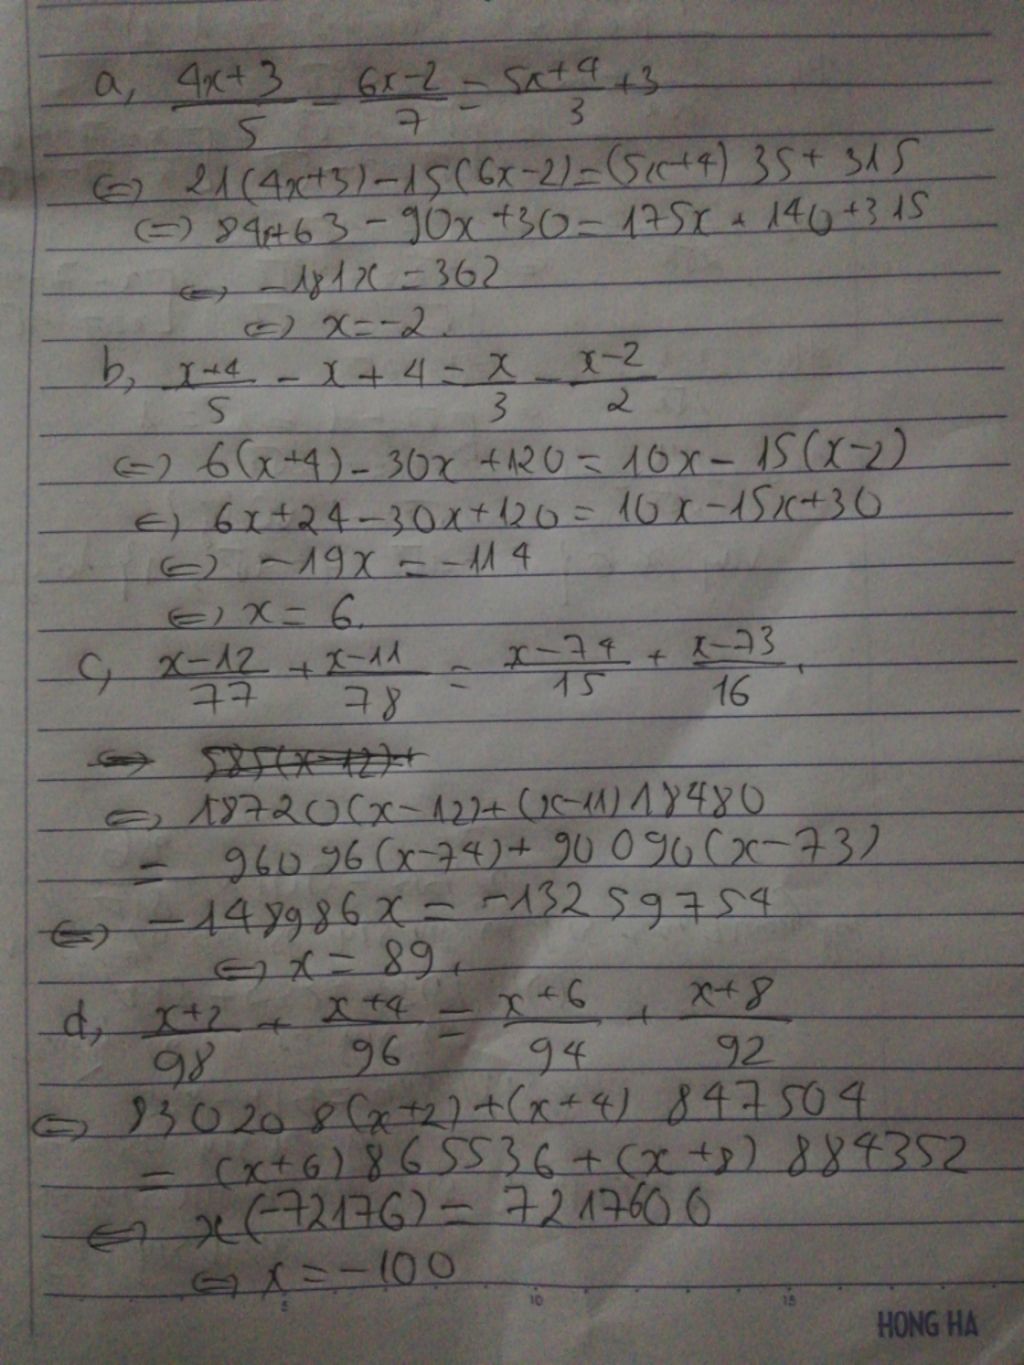 a, (4x+3)/5 - (6x-2)/7 = (5x+4)/3 +3
<=> 21(4x+3)-15(6x-2)=(5x+4) 35+ 315
<=> 84x+63 - 90x +30= 175x + 140+315
<=> -181x = 362
<=> x=-2.
b, (x+4)/5 - x + 4 = x/3 - (x-2)/2
<=> 6(x+4)- 30x +120= 10x- 15(x-2)
<=> 6x+24-30x+120= 10x-15x+30
<=> -19x = -114
<=> x= 6.
c, (x-12)/77 + (x-11)/78 = (x-74)/15 + (x-73)/16.
<=> 585(x-12)+
<=> 18720(x-12)+(x-11)18480
= 96096(x-74)+ 90090(x-73)
<=> -148986x = -13259754
<=> x = 89.
d, (x+2)/98 + (x+4)/96 = (x+6)/94 + (x+8)/92
<=> 830208(x+2)+(x+4) 847504
= (x+6) 865536+(x+8) 884352
<=> x(-72176)= 7217600
<=> x=-100
5 10 15
HONG HA